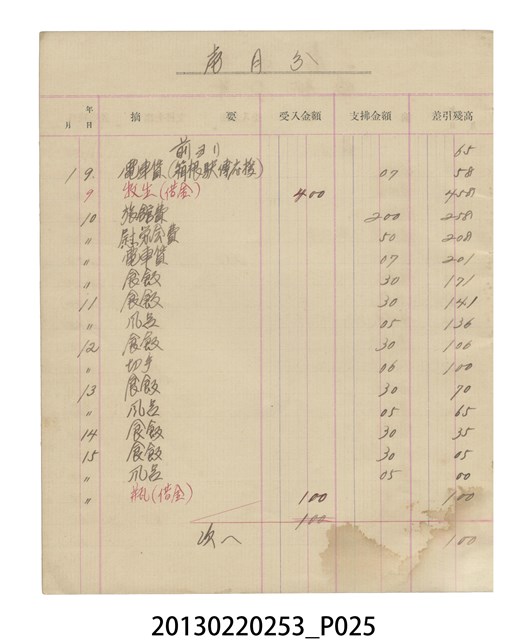 月分
年 月 日 摘要 受入金額 支拂金額 差引残高
前ヨリ 65
1 9 電車賃(箱根駅傳応援) 07 58
9 (借金) 400 458
10 旅館費 200 258
〃 慰労会費 50 208
〃 電車賃 07 201
〃 食飯 30 171
11 食飯 30 141
〃 風呂 05 136
12 食飯 30 106
〃 切手 06 100
13 食飯 30 70
〃 風呂 05 65
14 食飯 30 35
15 食飯 30 05
〃 風呂 05 00
〃 (借金) 100 100
100
次へ 100
20130220253_P025